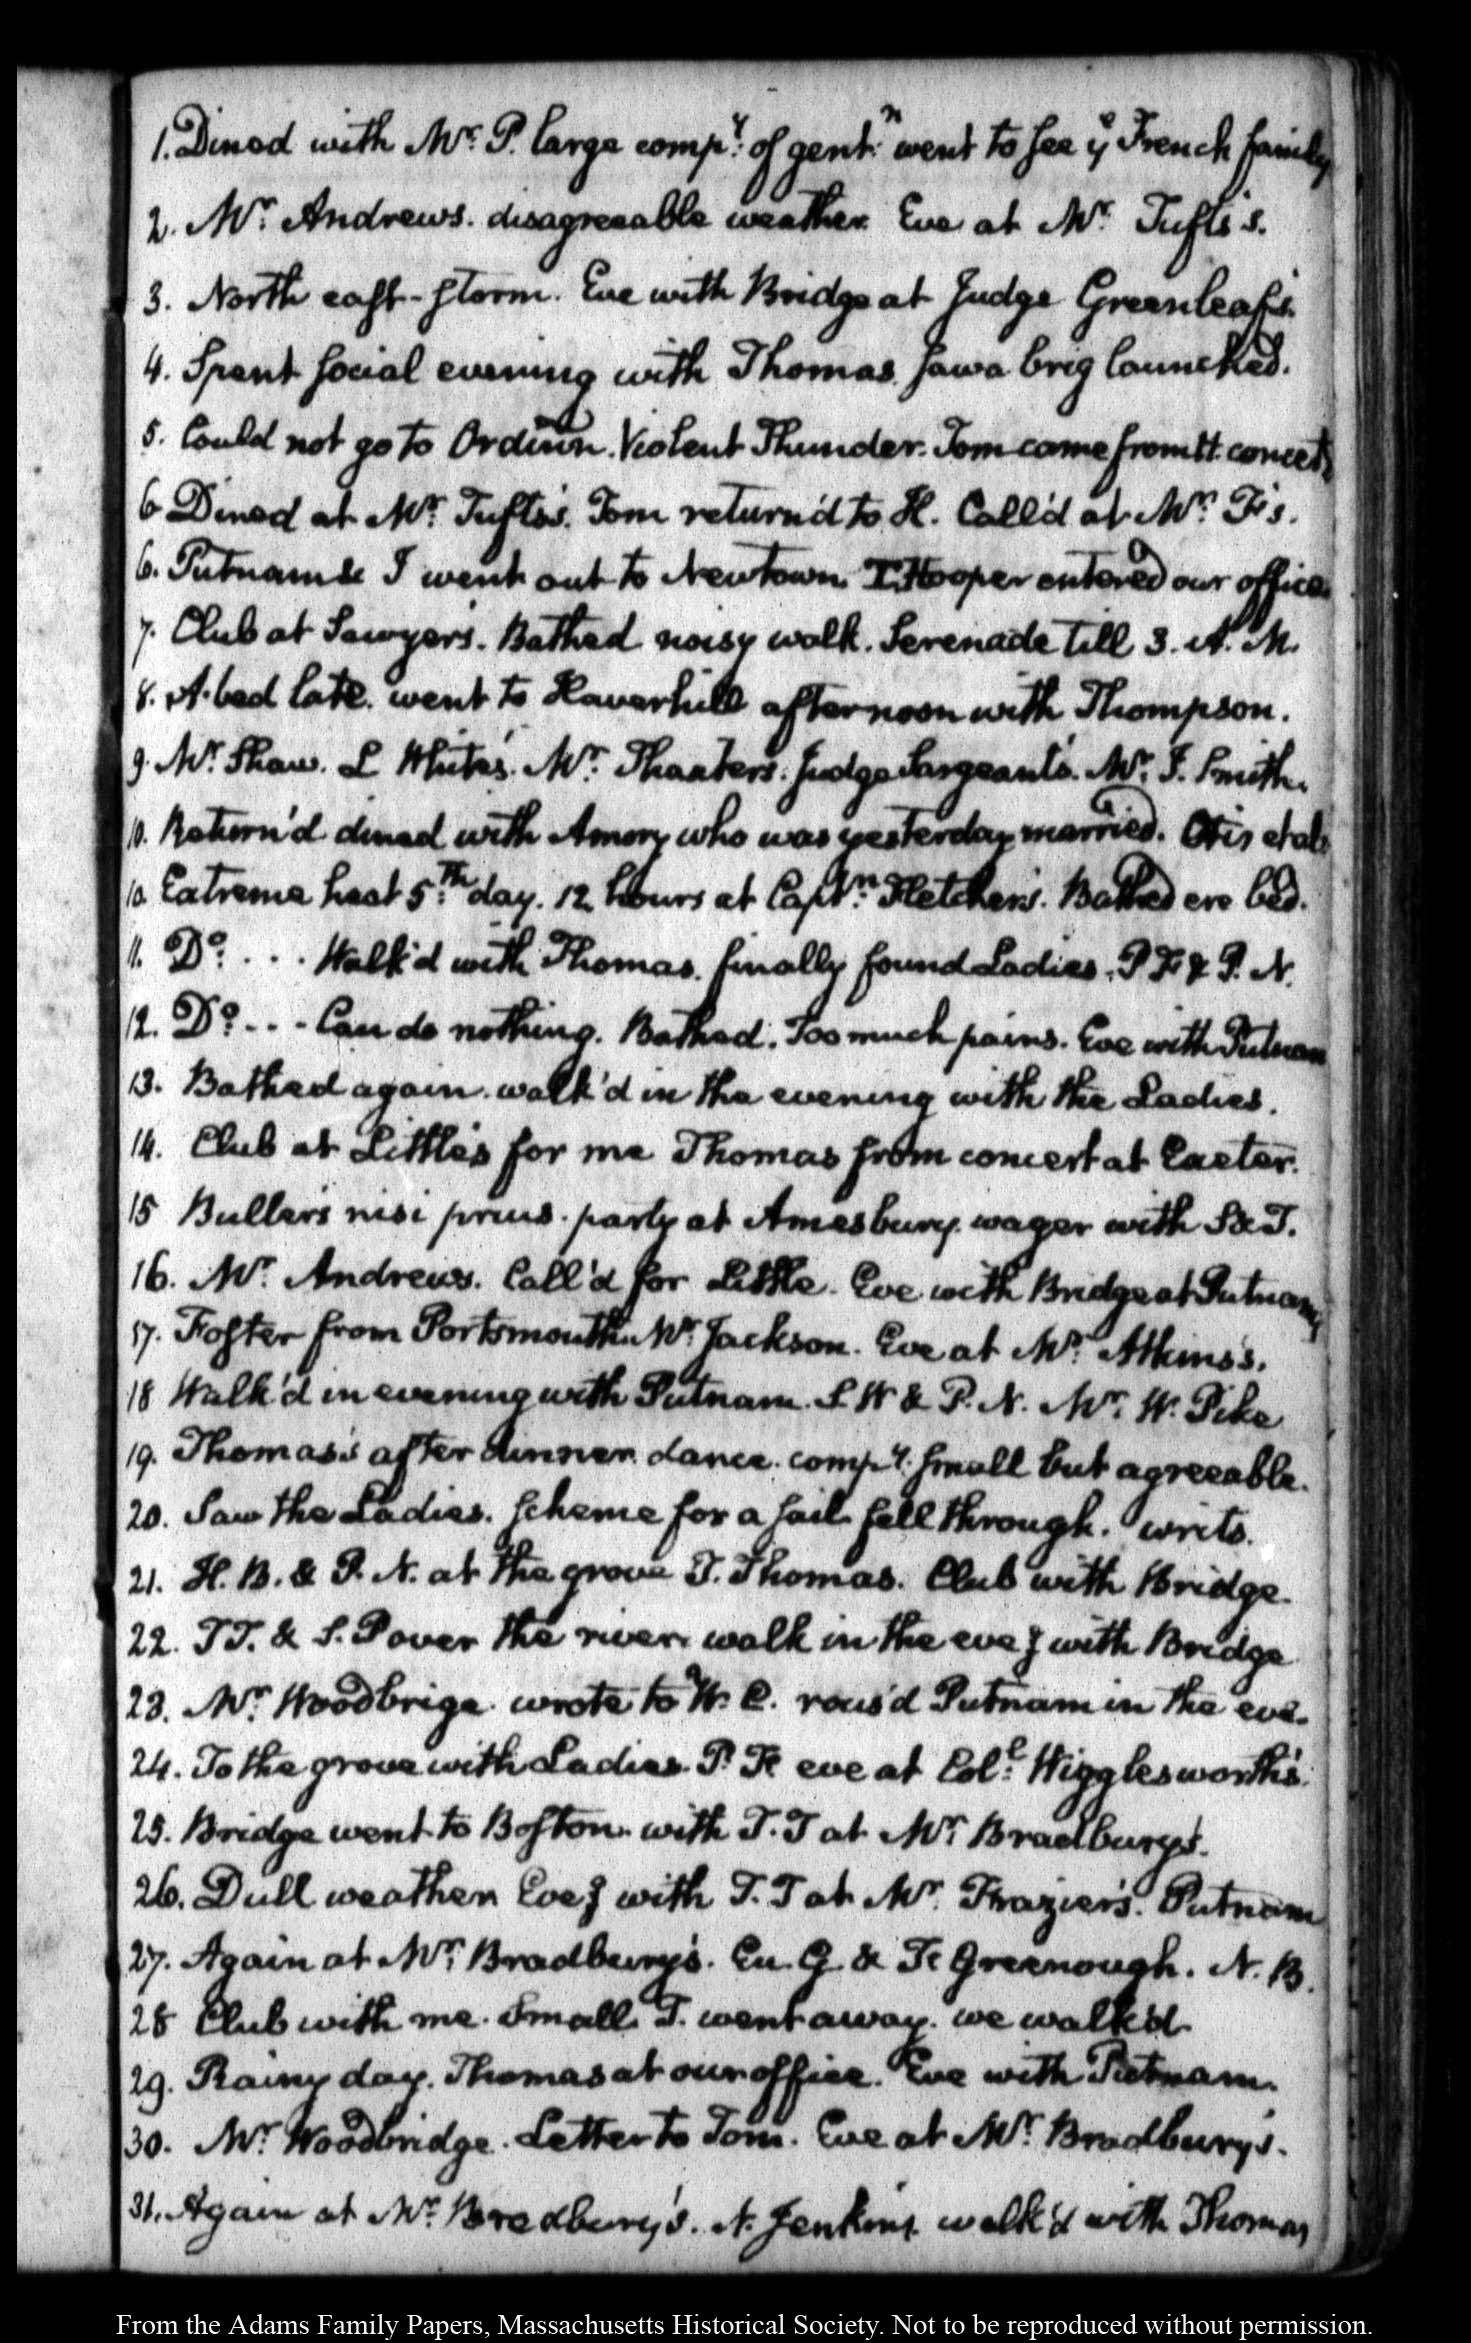 1. Dined with Mr. P. large compy. of gentn. went to see ye French family
2. Mr. Andrews. disagreeable weather. Eve at Mr. Tufts's.
3. North east-storm. Eve with Bridge at Judge Greenleaf's.
4. Spent social evening with Thomas. saw a brig launched.
5. Could not go to Ordinn. Violent Thunder. Tom came from H. concert.
6 Dined at Mr. Tufts's. Tom return'd to H. Call'd at Mr. F's.
6. Putnam & I went out to Newtown. T. Hooper entered our office.
7. Club at Sawyer's. Bathed noisy walk. Serenade till 3. A. M.
8. A-bed late. went to Haverhill afternoon with Thompson.
9. Mr. Shaw. L White's. Mr. Thaxter's. Judge Sargeant's. Mr. J. Smith.
10. Return'd dined with Amory who was yesterday married. Otis et al.
10. Extreme heat 5.th day. 12 hours at Captn. Fletcher's. Bathed ere bed.
11. Do. . . . Walk'd with Thomas. finally found Ladies. P F & P. N.
12. Do. . . - Can do nothing. Bathed. Too much pains. Eve with Putnam
13. Bathed again. walk'd in the evening with the Ladies.
14. Club at Little's for me Thomas from concert at Exeter.
15 Buller's nisi prius. party at Amesbury. wager with S & T.
16. Mr. Andrews. Call'd for Little. Eve with Bridge at Putnam's
17. Foster from Portsmouth. Mr. Jackson. Eve at Mr. Atkins's.
18 Walk'd in evening with Putnam. S. W & P. N. Mr. W. Pike
19. Thomas's after dinner. dance. compy. small but agreeable.
20. Saw the Ladies. scheme for a sail fell through. writs.
21. H. B. & P. N. at the grove J. Thomas. Club with Bridge.
22. T T. & S. P over the river. walk in the eveg with Bridge
23. Mr. Woodbrige. wrote to W. C. rous'd Putnam in the eve.
24. To the grove with Ladies. P. F. eve at Coll. Wigglesworth's.
25. Bridge went to Boston. with T. T at Mr. Bradbury's.
26. Dull weather. Eveg with T. T at Mr. Frazier's. Putnam
27. Again at Mr. Bradbury's. Eu. G & F. Greenough. N. B.
28 Club with me. Small. T. went away. we walk'd.
29. Rainy day. Thomas at our office. Eve with Putnam.
30. Mr. Woodbridge. Letter to Tom. Eve at Mr. Bradbury's.
31. Again at Mr. Bradbury's. N. Jenkins walk'd with Thomas
From the Adams Family Papers, Massachusetts Historical Society. Not to be reproduced without permission.